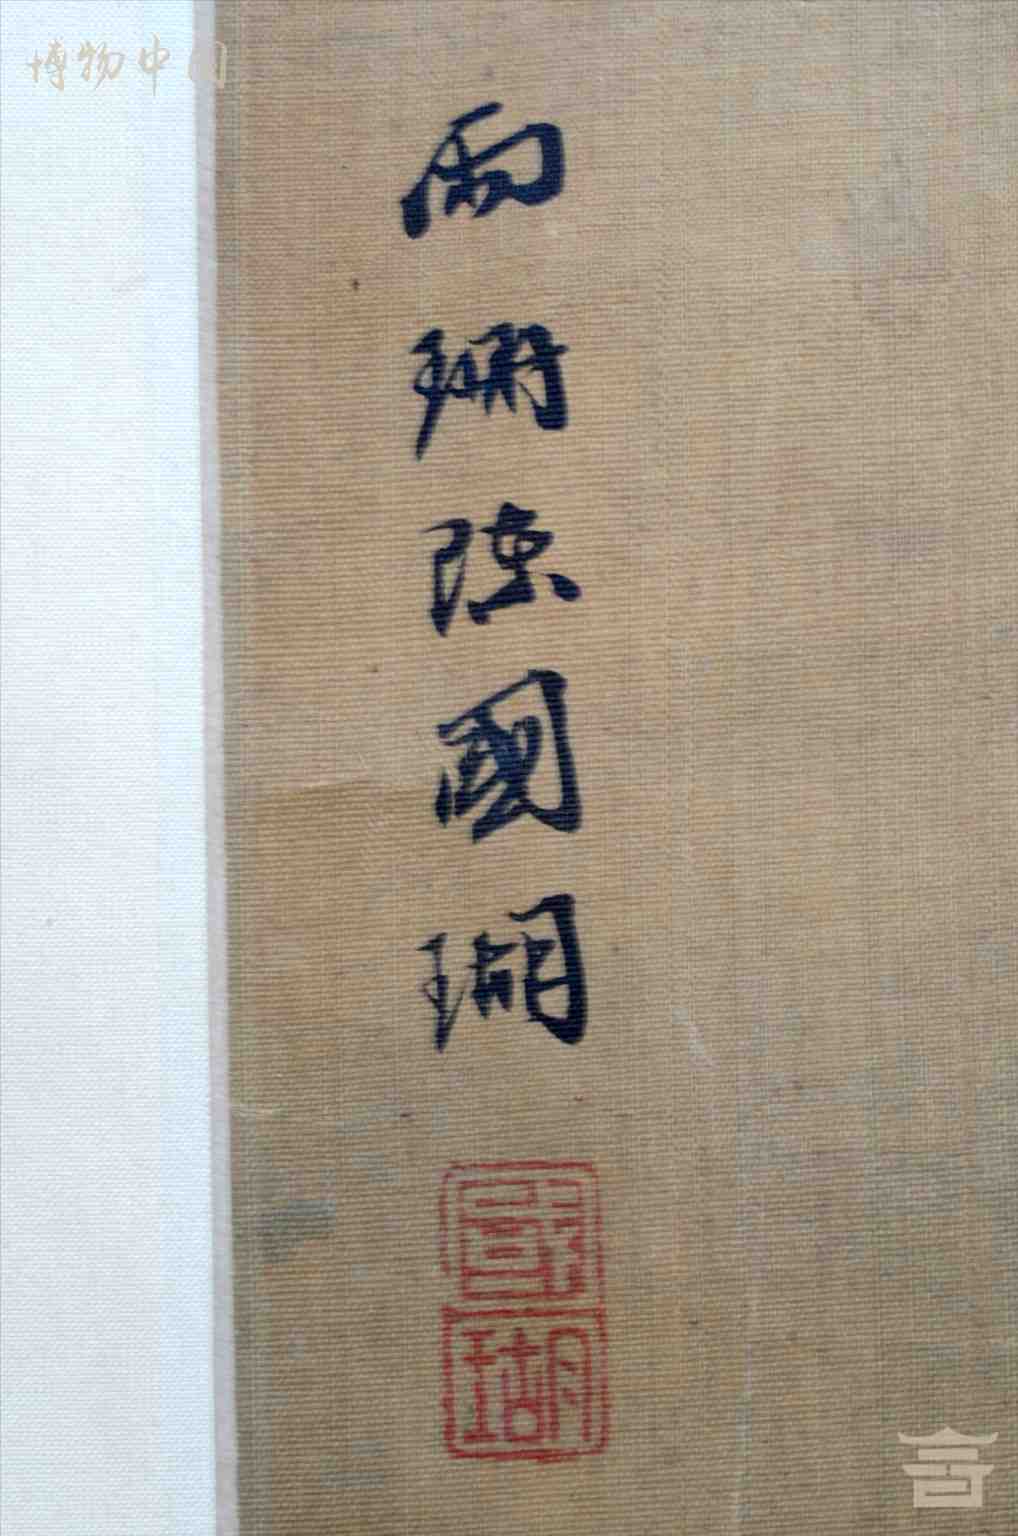 博物中国
雨珊陈國瑚
國瑚